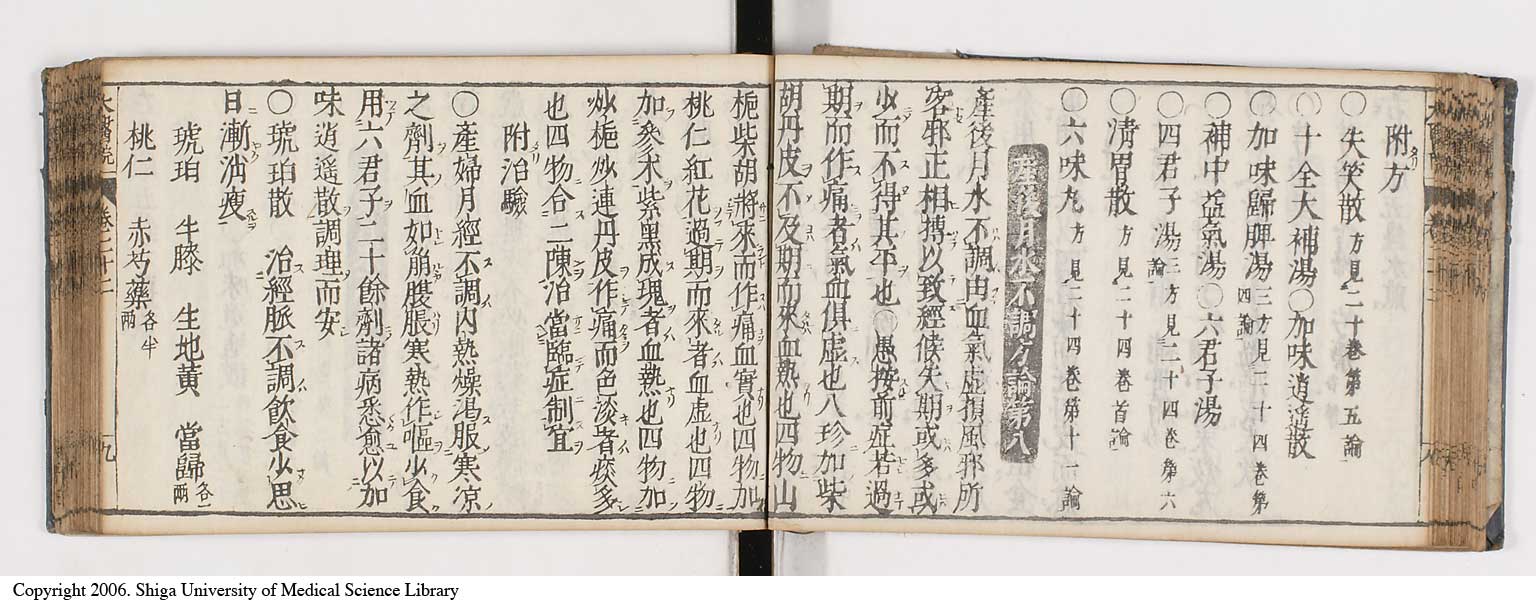 附方
○失笑散方見二十卷第五論
○十全大補湯○加味逍遙散
○加味歸脾湯三方見二十四卷第四論
○補中益氣湯○六君子湯
○四君子湯三方見二十四卷第六論
○清胃散方見二十四卷首論
○六味丸方見二十四卷第十一論
產後月水不調方論第八
產後月水不調由血氣虛損風邪所
客邪正相搏以致經候失期或多或
少而不得其平也○愚按前症若過
期而作痛者氣血俱虛也八珍加柴
胡丹皮不及期而來血熱也四物山
梔柴胡將來而作痛血實也四物加
桃仁紅花過期而來者血虛也四物
加參朮紫黑成瑰者血熱也四物加
炒梔炒連丹皮作痛而色淡者痰多
也四物合二陳治當臨症制宜
附治驗
○產婦月經不調內熱燥渴服寒凉
之劑其血如崩腹脹寒熱作嘔少食
用六君子二十餘劑諸病悉愈以加
味逍遙散調理而安
○琥珀散 治經脈不調飲食少思
日漸消瘦
琥珀 牛膝 生地黃 當歸各一兩
桃仁 赤芍藥各半兩
卷二十二
九
Copyright 2006. Shiga University of Medical Science Library